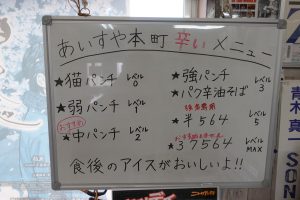 あいすや本町 辛いメニュー
★猫パンチ レベル0
★弱パンチ レベル1
おすすめ
★中パンチ レベル2
★強パンチ
★パク辛油そば レベル3
★半564 レベル5
★37564 レベルMAX
食後のアイスがおいしいよ!!
青木真
SON